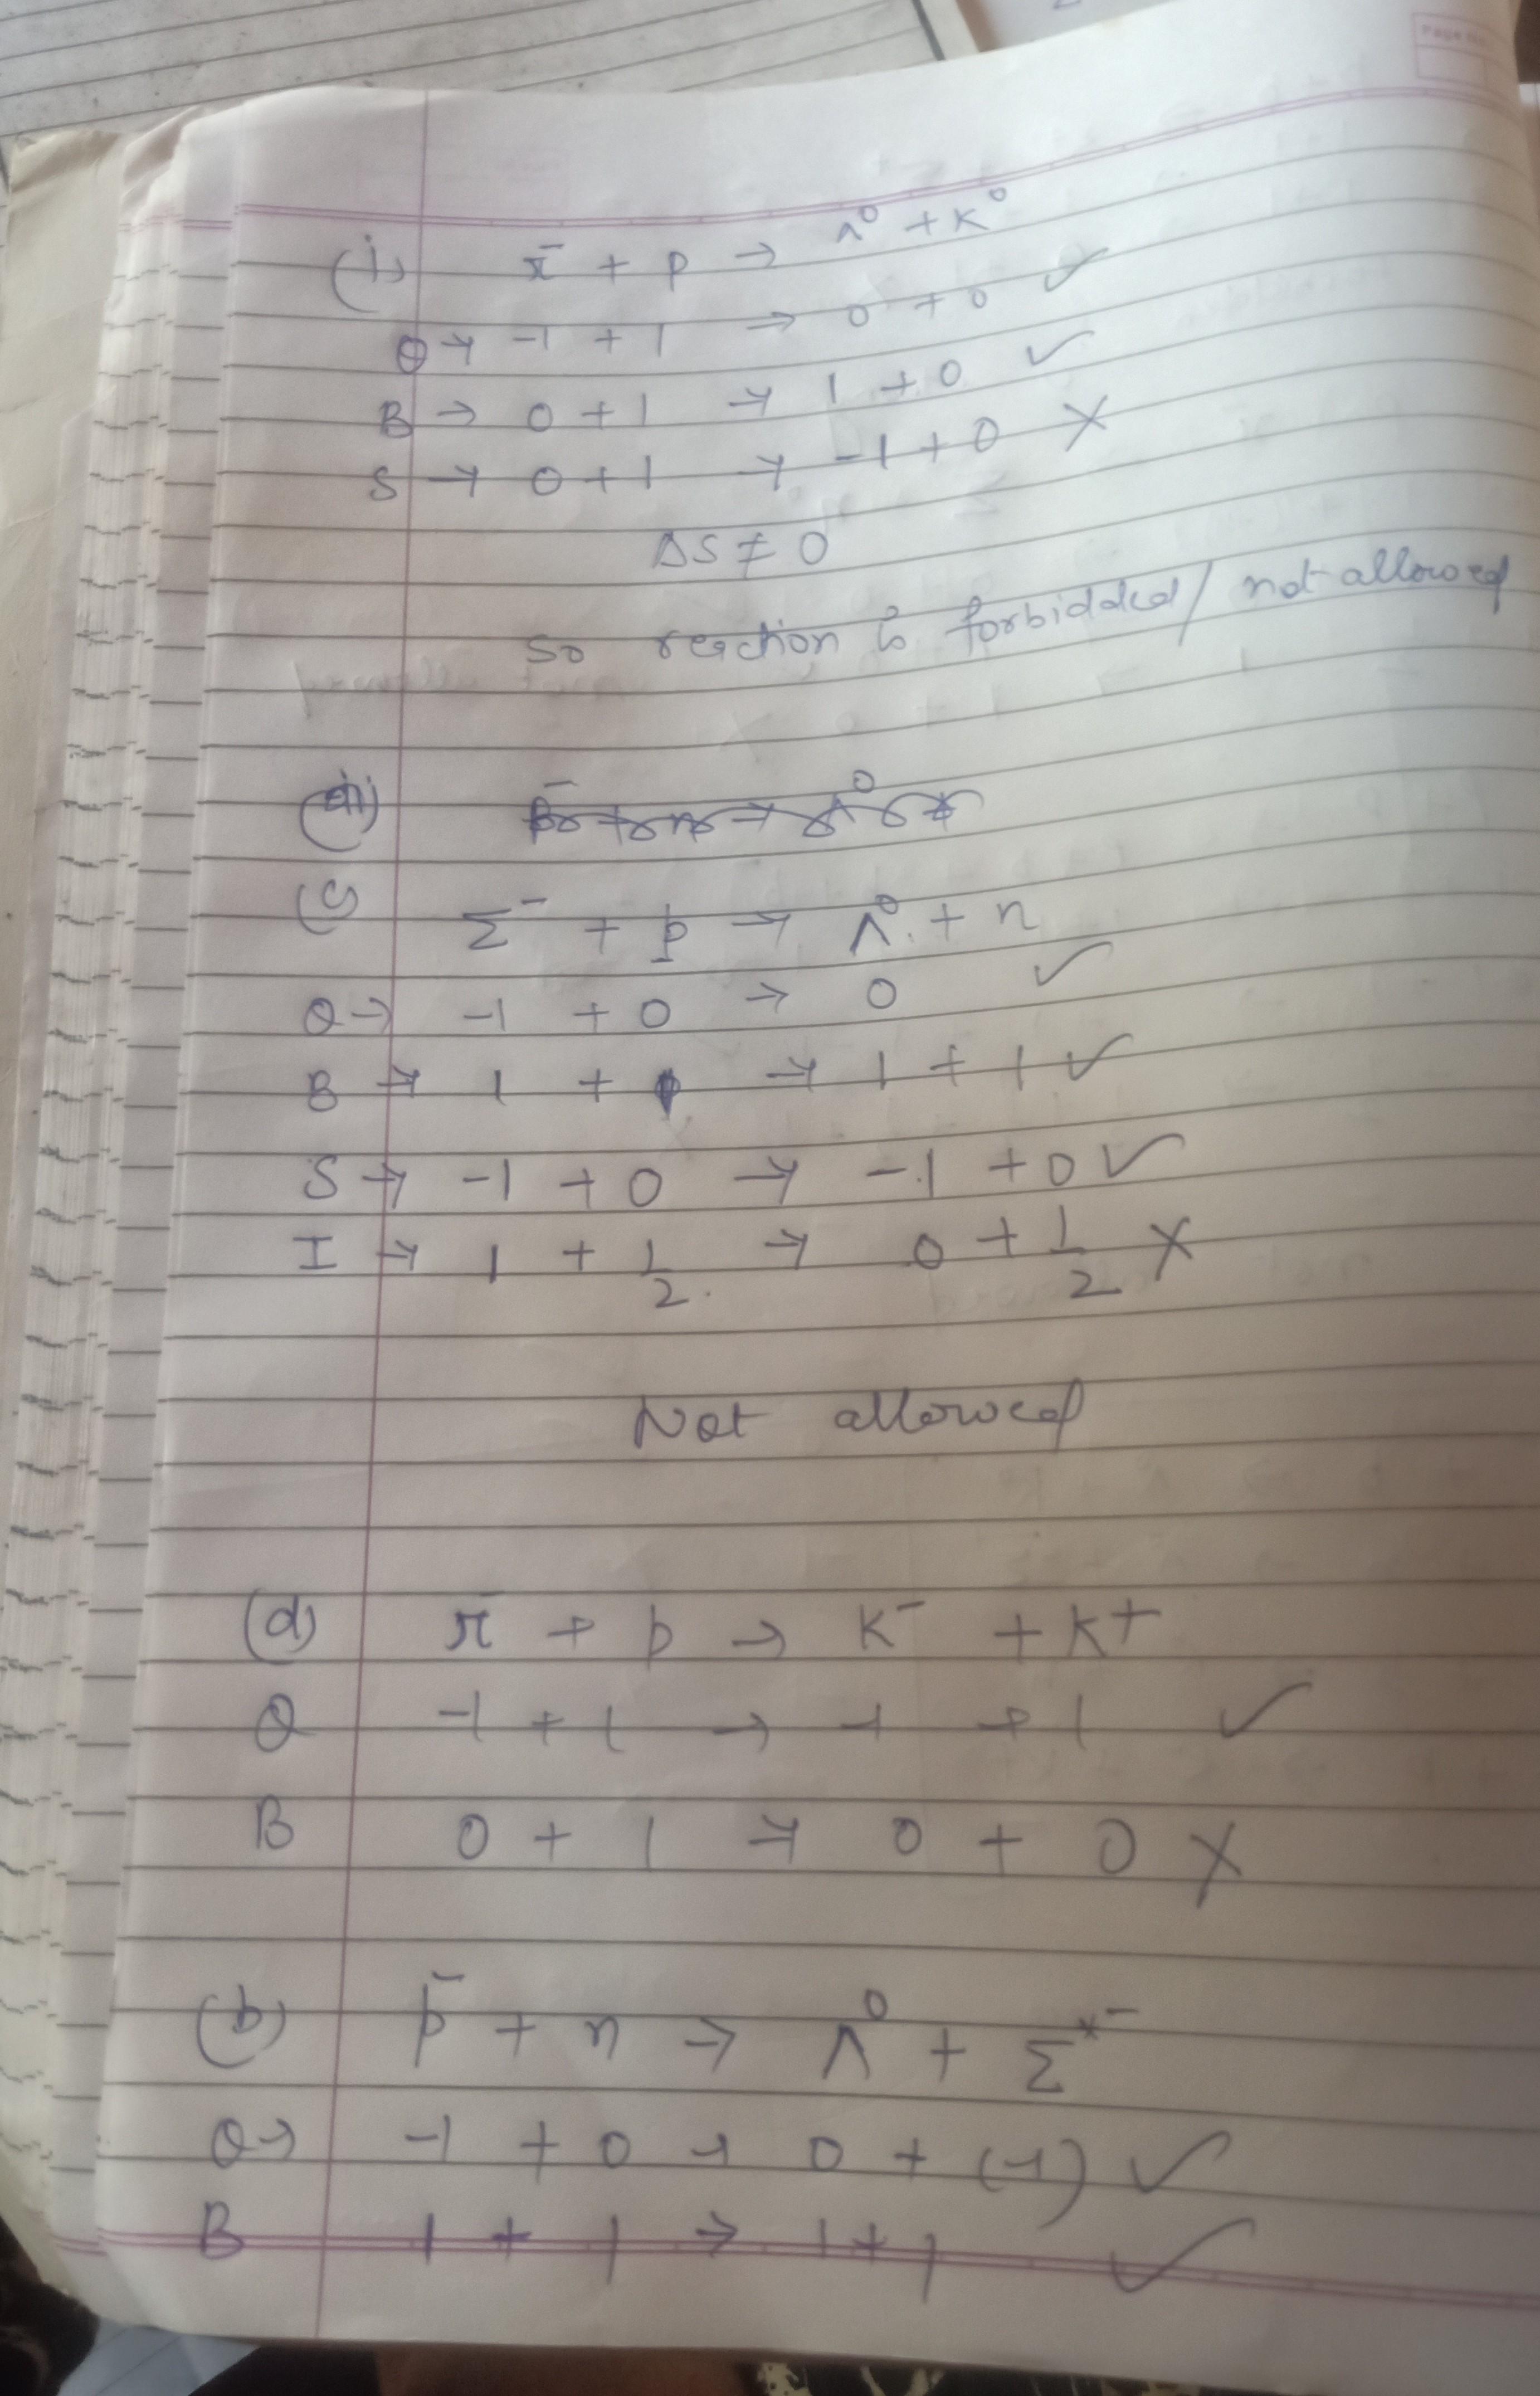 (i) π⁻ + p → Λ⁰ + K⁰
Q → -1 + 1 → 0 + 0 ✓
B → 0 + 1 → 1 + 0 ✓
S → 0 + 1 → -1 + 0 ✗
ΔS ≠ 0
So reaction is forbidded/not allowed
(c)
Σ⁻ + p → Λ⁰ + n
Q → -1 + 0 → 0 ✓
B → 1 + 1 → 1 + 1 ✓
S → -1 + 0 → -1 + 0 ✓
I → 1 + 1/2 → 0 + 1/2 ✗
Not allowed
(d) π⁻ + p → K⁻ + K⁺
Q -1 + 1 → -1 + 1 ✓
B 0 + 1 → 0 + 0 ✗
(b) p̄ + n → Λ⁰ + Σ*⁻
Q → -1 + 0 → 0 + (-1) ✓
B 1 + 1 → 1 + 1 ✓